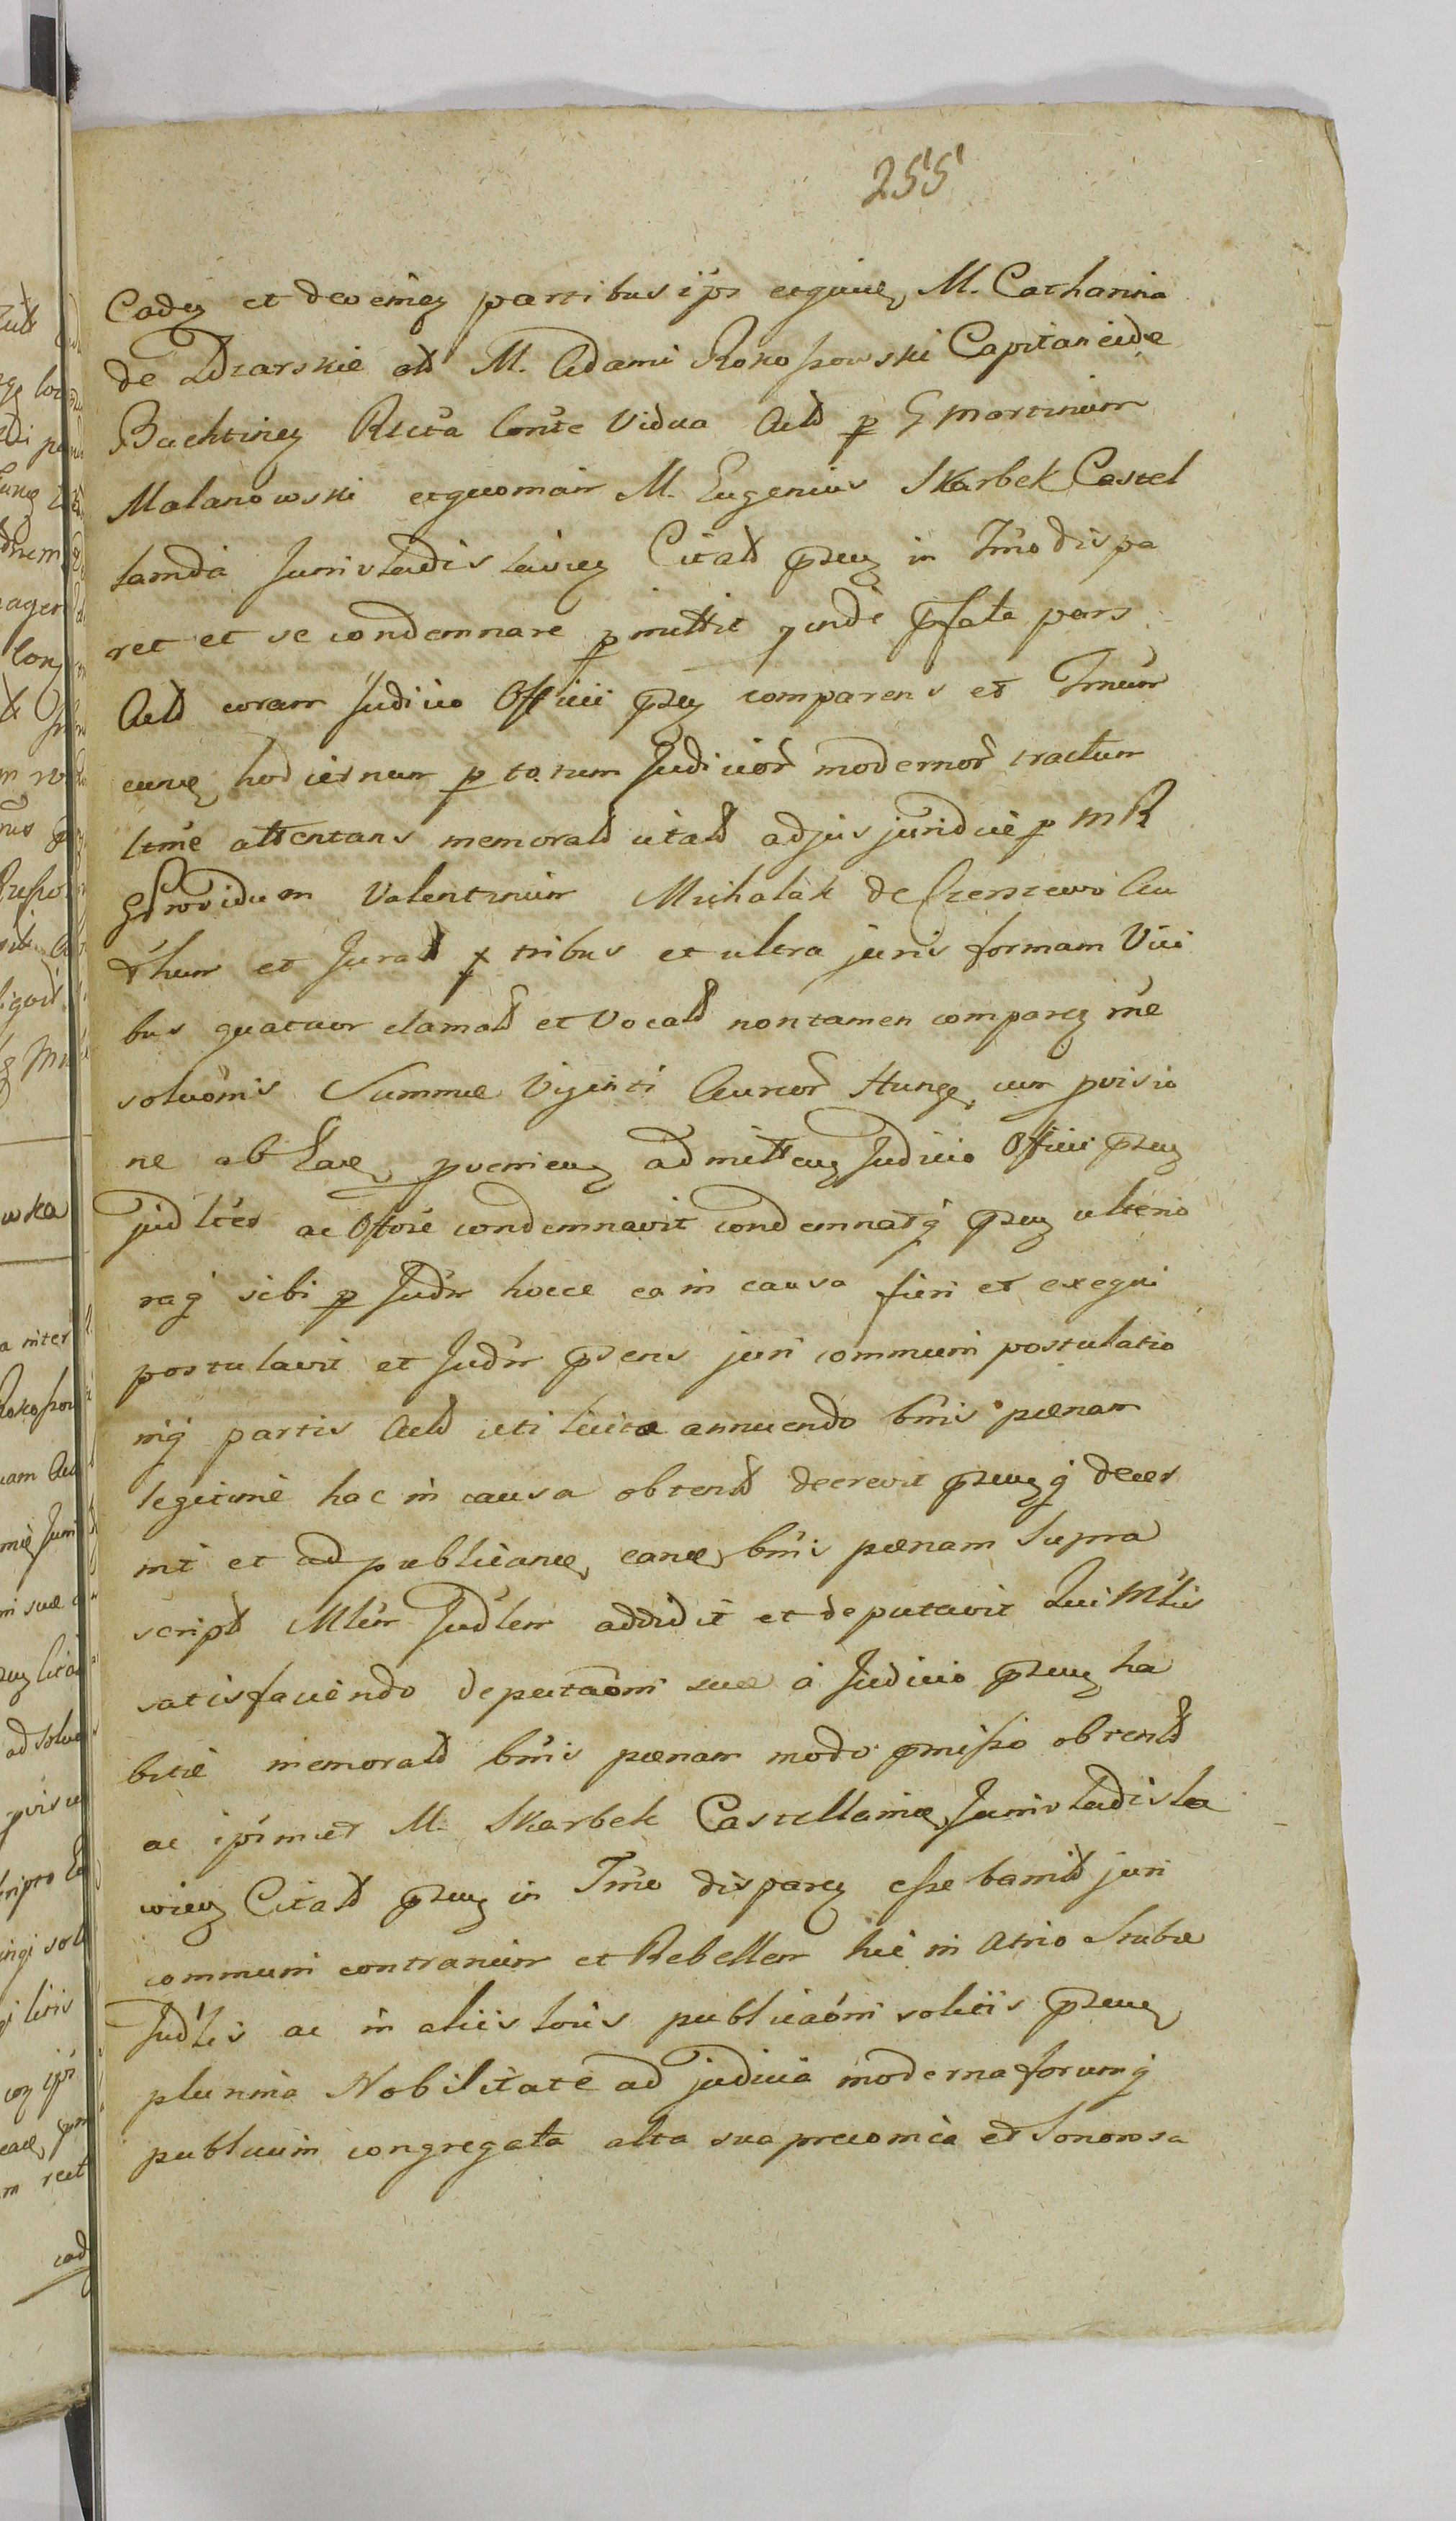 255
Cadeñ et deveñieñ partibus ips̄ exquīe, M. Catharina
de Zdzarskie olđ M. Adami Rokoszowski Capitaneidæ
Buchtineñ Relicta Con̄te Vidua Actđ p G Martinum
Malanowski exquo mair M. Eugenius Skarbek Castel
lanida Junivladislavieñ Citatđ p̄nteñ in Tr̄no dispa
ret et se condemnare pmittit p̄fata pars
Actđ coram Judicio Officii p̄nteñ comparens et Tr̄num
hodiernum p totum Judicior̄ modernor̄ tractum
ltm̄e attentans memoratđ citatđ ad jus juridice p M R
Providum Valentinum Michalak de
et Juratđ tribus et ultra juris formam Vici
bus quatuor clamatđ et vocatđ non tamen compareñ rn̄e
soluōnis Summæ Viginti Aureor̄ Hung cum pvisio
ne ab Eac, pvenieñ admitteñ Judicio Officii p̄nteñ
judltēr ac Offōse condemnavit condemnatq p̄nteñ ulterio
raq sibi p Jud̄m hocce ea in causa fieri et exequi
postulavit et Jud̄m p̄sens juri communi postulatio
niq partis Actđ uti licitæ annuendo bn̄is pænam
legitimè hac in causa obtentđ decrevit p̄nteñq decer
nit et ad publicanđ, eanđ bn̄is pænam supra
scriptđ Mlēm Jud̄lem addidit et deputavit Qui Mlis
satisfaciendo deputāōni suæ à Judicio p̄nteñ ha
bitæ memoratđ bn̄is pænam modo p̄miszo obtentđ
ac ipsmet M. Skarbek Castellaniđ Junivladisla
vieñ Citatđ p̄nteñ in Tr̄no dispareñ esze bannitđ juri
communi contrarium et Rebellem hic in atrio Stubæ
Jud̄lis ac in aliis locis publicāōni solitis p̄nteñ
plurima Nobilitate ad judicia moderna forumq
publicum congregata alta sua preconica et sonorosa